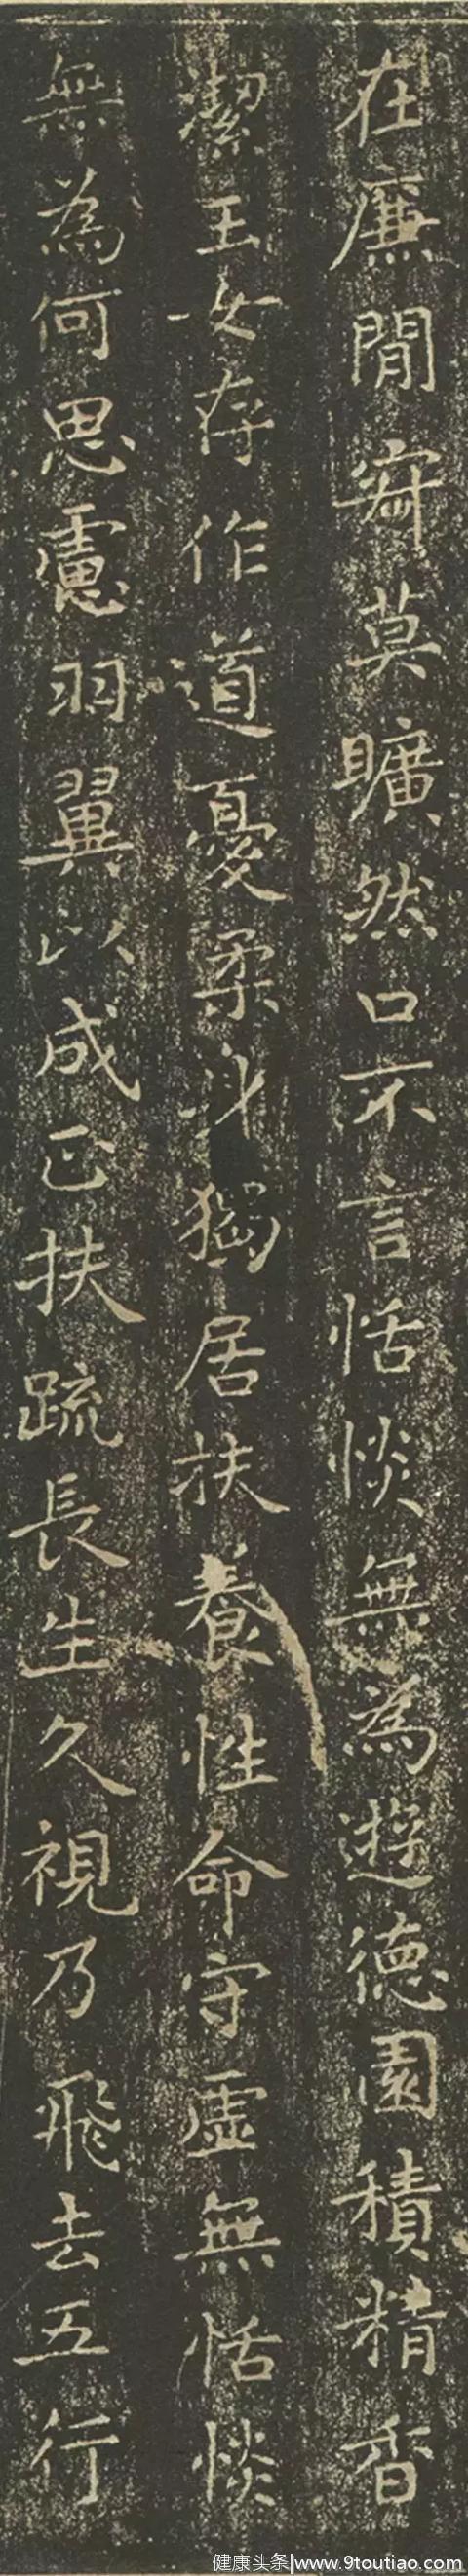 在廉閒寂莫曠然口不言恬惔無為遊德園積精香
潔玉女存作道憂柔身獨居扶養性命守虛無恬惔
無為何思慮羽翼以成正扶疏長生久視乃飛去五行
健康头条|www.9toutiao.com